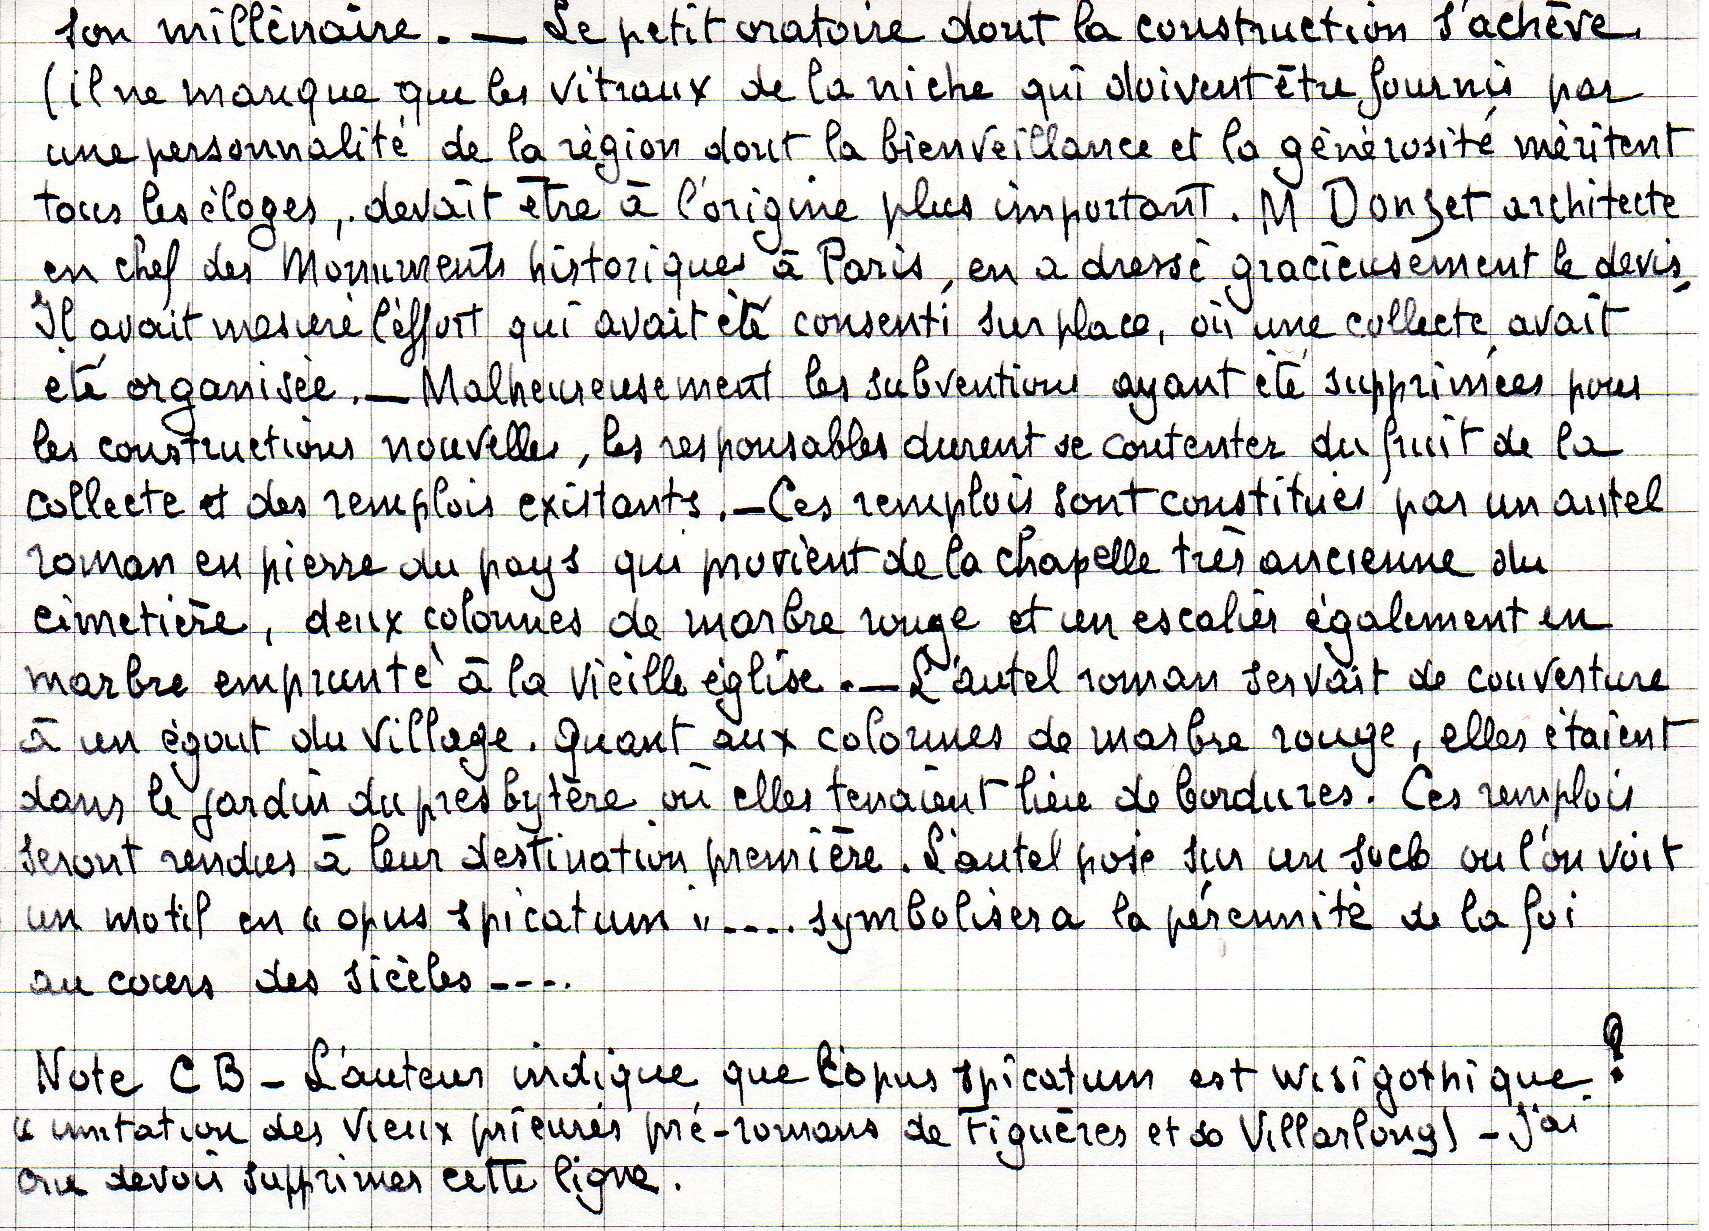 son millénaire. — Le petit oratoire dont la construction s'achève
(il ne manque que les vitraux de la niche qui doivent être fournis par
une personnalité de la région dont la bienveillance et la générosité méritent
tous les éloges, devait être à l'origine plus important. M Donzet architecte
en chef des Monuments historiques à Paris, en a dressé gracieusement le devis,
Il avait mesuré l'éffort qui avait été consenti sur place, où une collecte avait
été organisée. — Malheureusement les subventions ayant été supprimées pour
les constructions nouvelles, les responsables durent se contenter du fruit de la
collecte et des remplois existants. — Ces remplois sont constitués par un autel
roman en pierre du pays qui provient de la chapelle très ancienne du
cimetière, deux colonnes de marbre rouge et un escalier également en
marbre emprunté à la vieille église. — L'autel roman servait de couverture
à un égout du village. Quant aux colonnes de marbre rouge, elles étaient
dans le jardin du presbytère où elles tenaient lieu de bordures. Ces remplois
seront rendus à leur destination première. L'autel posé sur un socle ou l'on voit
un motif en "opus spicatum" .... symbolisera la pérennité de la foi
au cours des siècles ----.
Note C B - L'auteur indique que l'opus spicatum est wisigothique ?
"imitation des vieux prieurés pré-romans de Figuères et de Villarlong) - j'ai
cru devoir supprimer cette ligne.